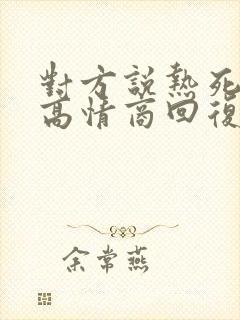 對方說熱死
高情商回復
余常燕